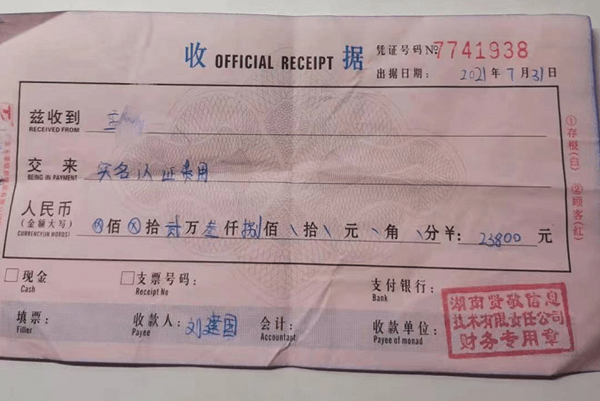 收 OFFICIAL RECEIPT 据
凭证号码 № 7741938
出据日期： 2021 年 7 月 31 日
兹收到
RECEIVED FROM
交来 实名认证费用
BEING IN PAYMENT
人民币 佰 拾 贰 万 叁 仟 捌 佰 拾 元 角 分 ￥： 23800 元
(金额大写)
CURRENCY(IN WORDS)
① 存根(白)
② 顾客(红)
□ 现金 □ 支票号码： 支付银行：
Cash Receipt No Bank
填票： 收款人： 刘建国 会计： 收款单位：
Filler Payee Accountant Payee of monad
湖南贤敬信息
技术有限责任公司
财务专用章